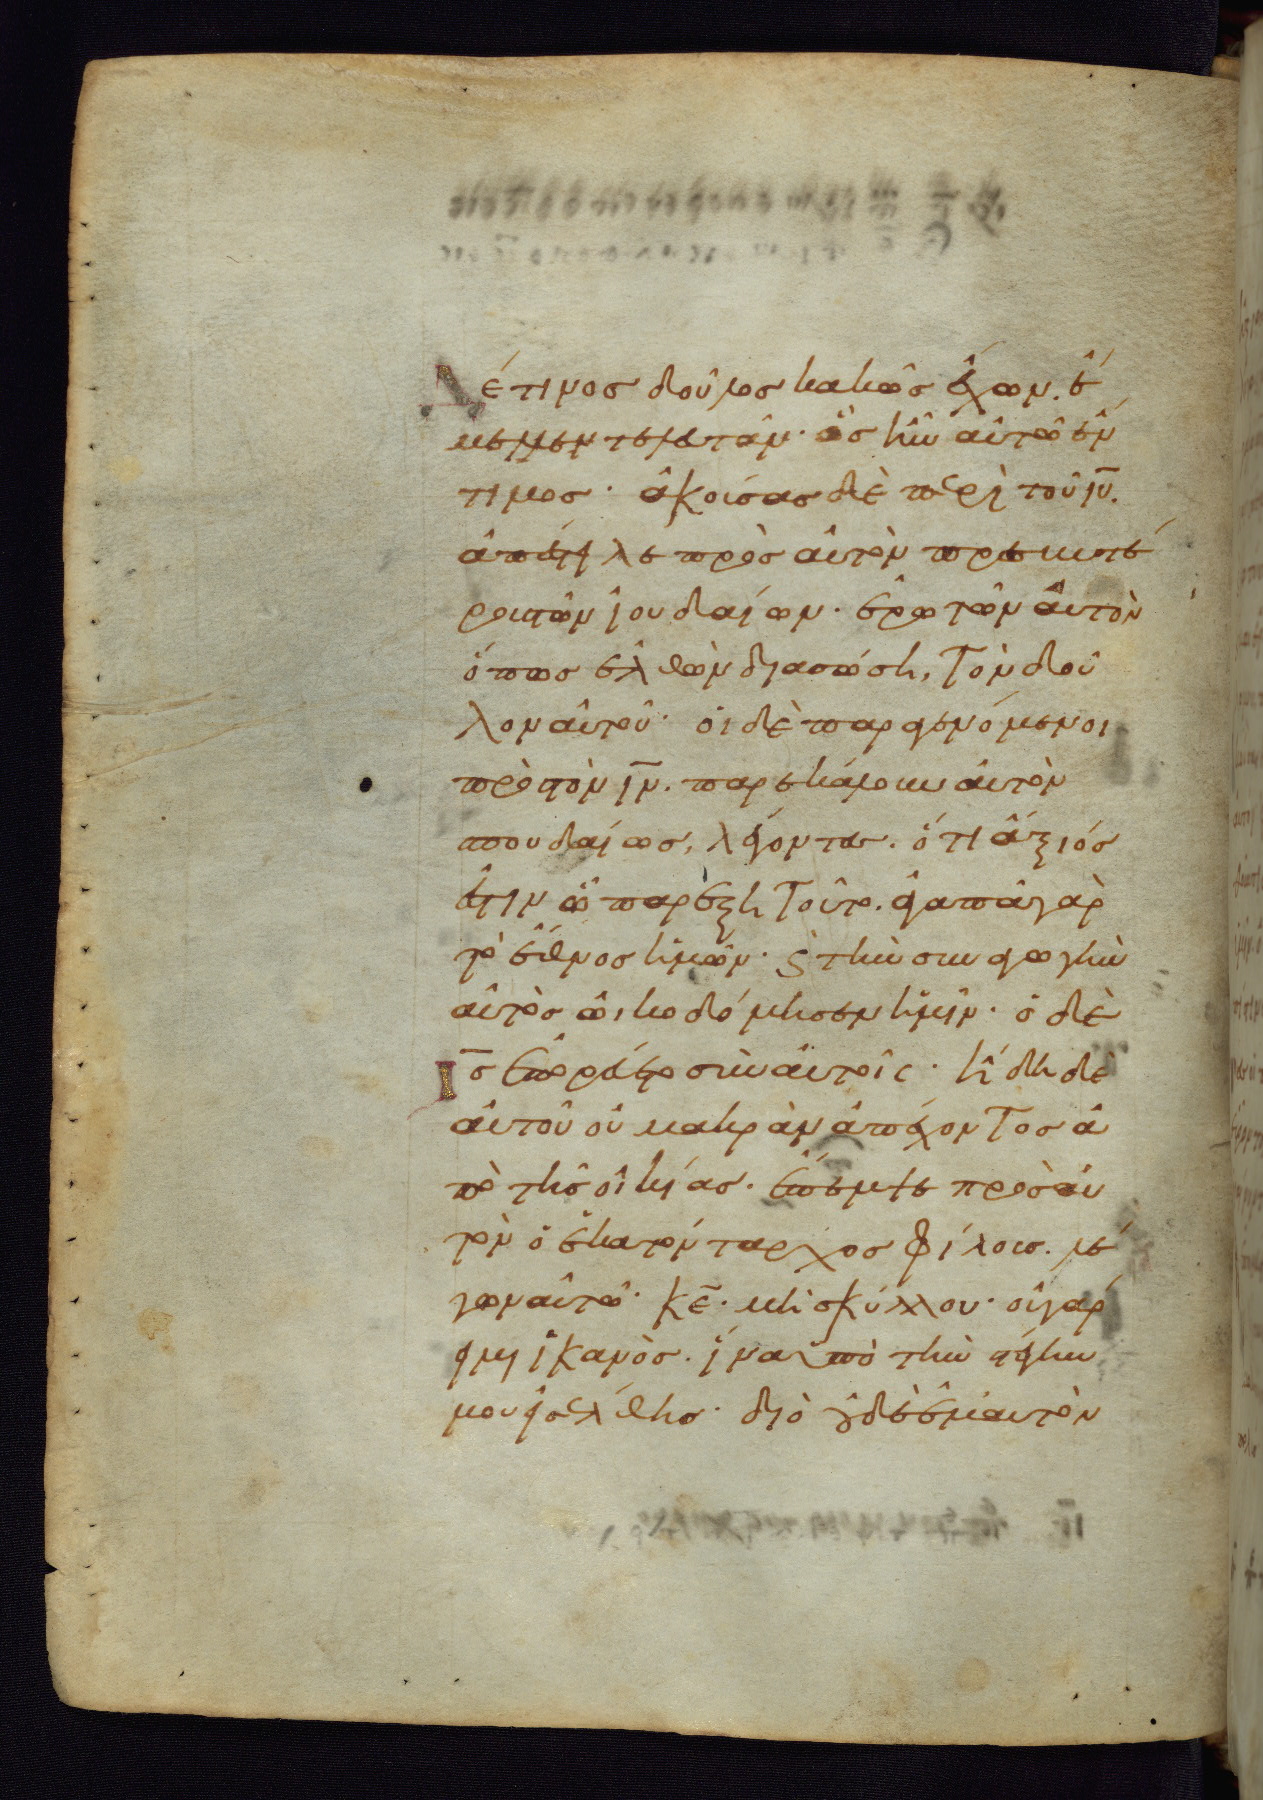 Δέ τινος δοῦλος κακῶς ἔχων. ἔ
μελλεν τελευτᾶν· ὃς ἦν αὐτῶ ἔν
τιμος· ἀκούσας δὲ περὶ τοῦ ιῡ.
ἀπέστειλε πρὸς αὐτὸν πρεσβυτέ
ρους τῶν ἰουδαίων· ἐρωτῶν αὐτὸν
ὅπως ἐλθὼν διασώση, τὸν δοῦ
λον αὐτοῦ· οἱ δὲ παραγενόμενοι
πρὸς τὸν ιν̄. παρεκάλουν αὐτὸν
σπουδαίως, λέγοντες. ὅτι ἄξιός
ἐστιν ὧ παρέξη τοῦτο. ἀγαπᾶ γὰρ
τὸ ἔθνος ἡμῶν· ϗ τὴν συναγωγὴν
αὐτὸς ὠικοδόμησεν ἡμῖν· ὁ δὲ
Ις̄ ἐπορεύετο σὺν αὐτοῖς· ἤδη δὲ
αὐτοῦ οὐ μακρὰν ἀπέχοντος ἀ
πὸ τῆς οἰκίας. ἔπεμψε πρὸς αὐ
τὸν ὁ ἑκατόνταρχος φίλους. λέ
γων αὐτῶ· κε̄· μὴ σκύλλου· οὐ γάρ
εἰμι ἱκανὸς. ἵνα ὑπὸ τὴν στέγην
μου εἰσέλθης· διὸ οὐδὲ ἐμαυτὸν